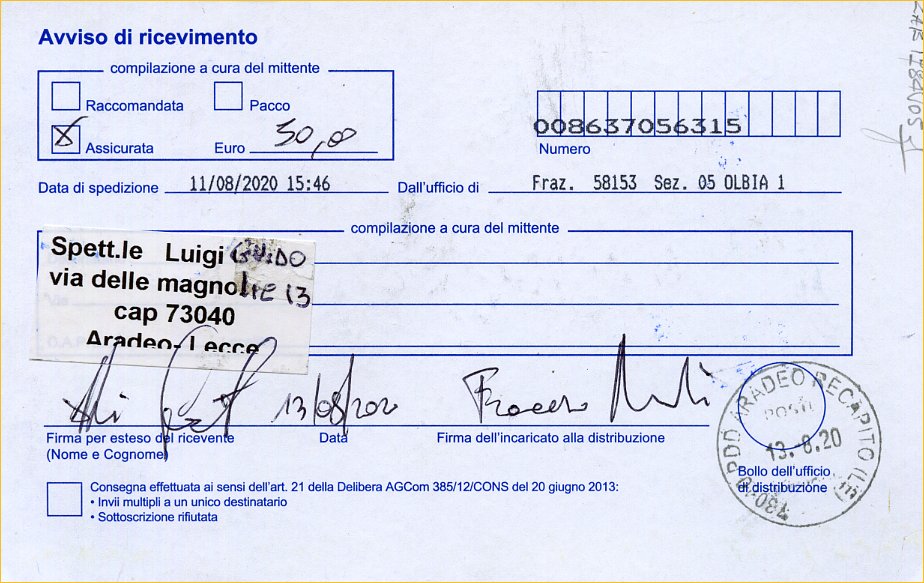 Avviso di ricevimento
compilazione a cura del mittente
Raccomandata Pacco
X Assicurata Euro 50,00
008637056315
Numero
Data di spedizione 11/08/2020 15:46 Dall'ufficio di Fraz. 58153 Sez. 05 OLBIA 1
compilazione a cura del mittente
Spett.le Luigi GUIDO
via delle magnolie 13
cap 73040
Aradeo- Lecce
13/08/2020
Firma per esteso del ricevente Data Firma dell'incaricato alla distribuzione
(Nome e Cognome)
ARADEO RECAPITO (LE)
13.-8.20
Bollo dell'ufficio
di distribuzione
Consegna effettuata ai sensi dell'art. 21 della Delibera AGCom 385/12/CONS del 20 giugno 2013:
• Invii multipli a un unico destinatario
• Sottoscrizione rifiutata